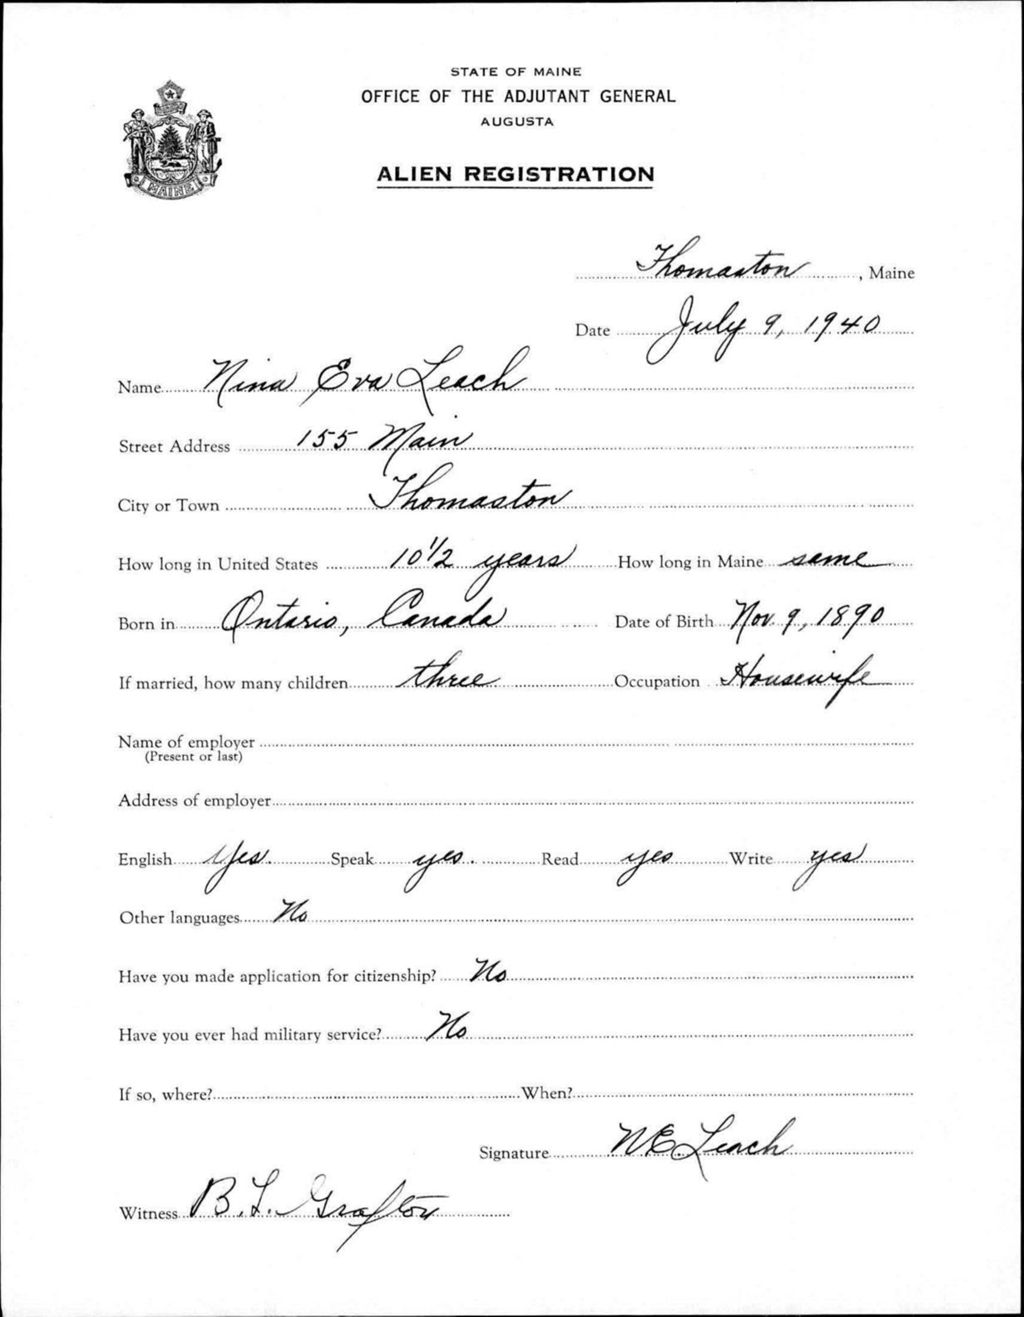 STATE OF MAINE
OFFICE OF THE ADJUTANT GENERAL
AUGUSTA
ALIEN REGISTRATION
MAINE
Thomaston, Maine
Date July 9, 1940
Name Nina Eva Leach
Street Address 155 Main
City or Town Thomaston
How long in United States 10 1/2 years How long in Maine same
Born in Ontario, Canada Date of Birth Nov. 9, 1890
If married, how many children three Occupation Housewife
Name of employer
(Present or last)
Address of employer
English Yes. Speak yes. Read yes Write yes
Other languages No
Have you made application for citizenship? No
Have you ever had military service? No
If so, where? When?
Signature N E Leach
Witness B. L. Grafton